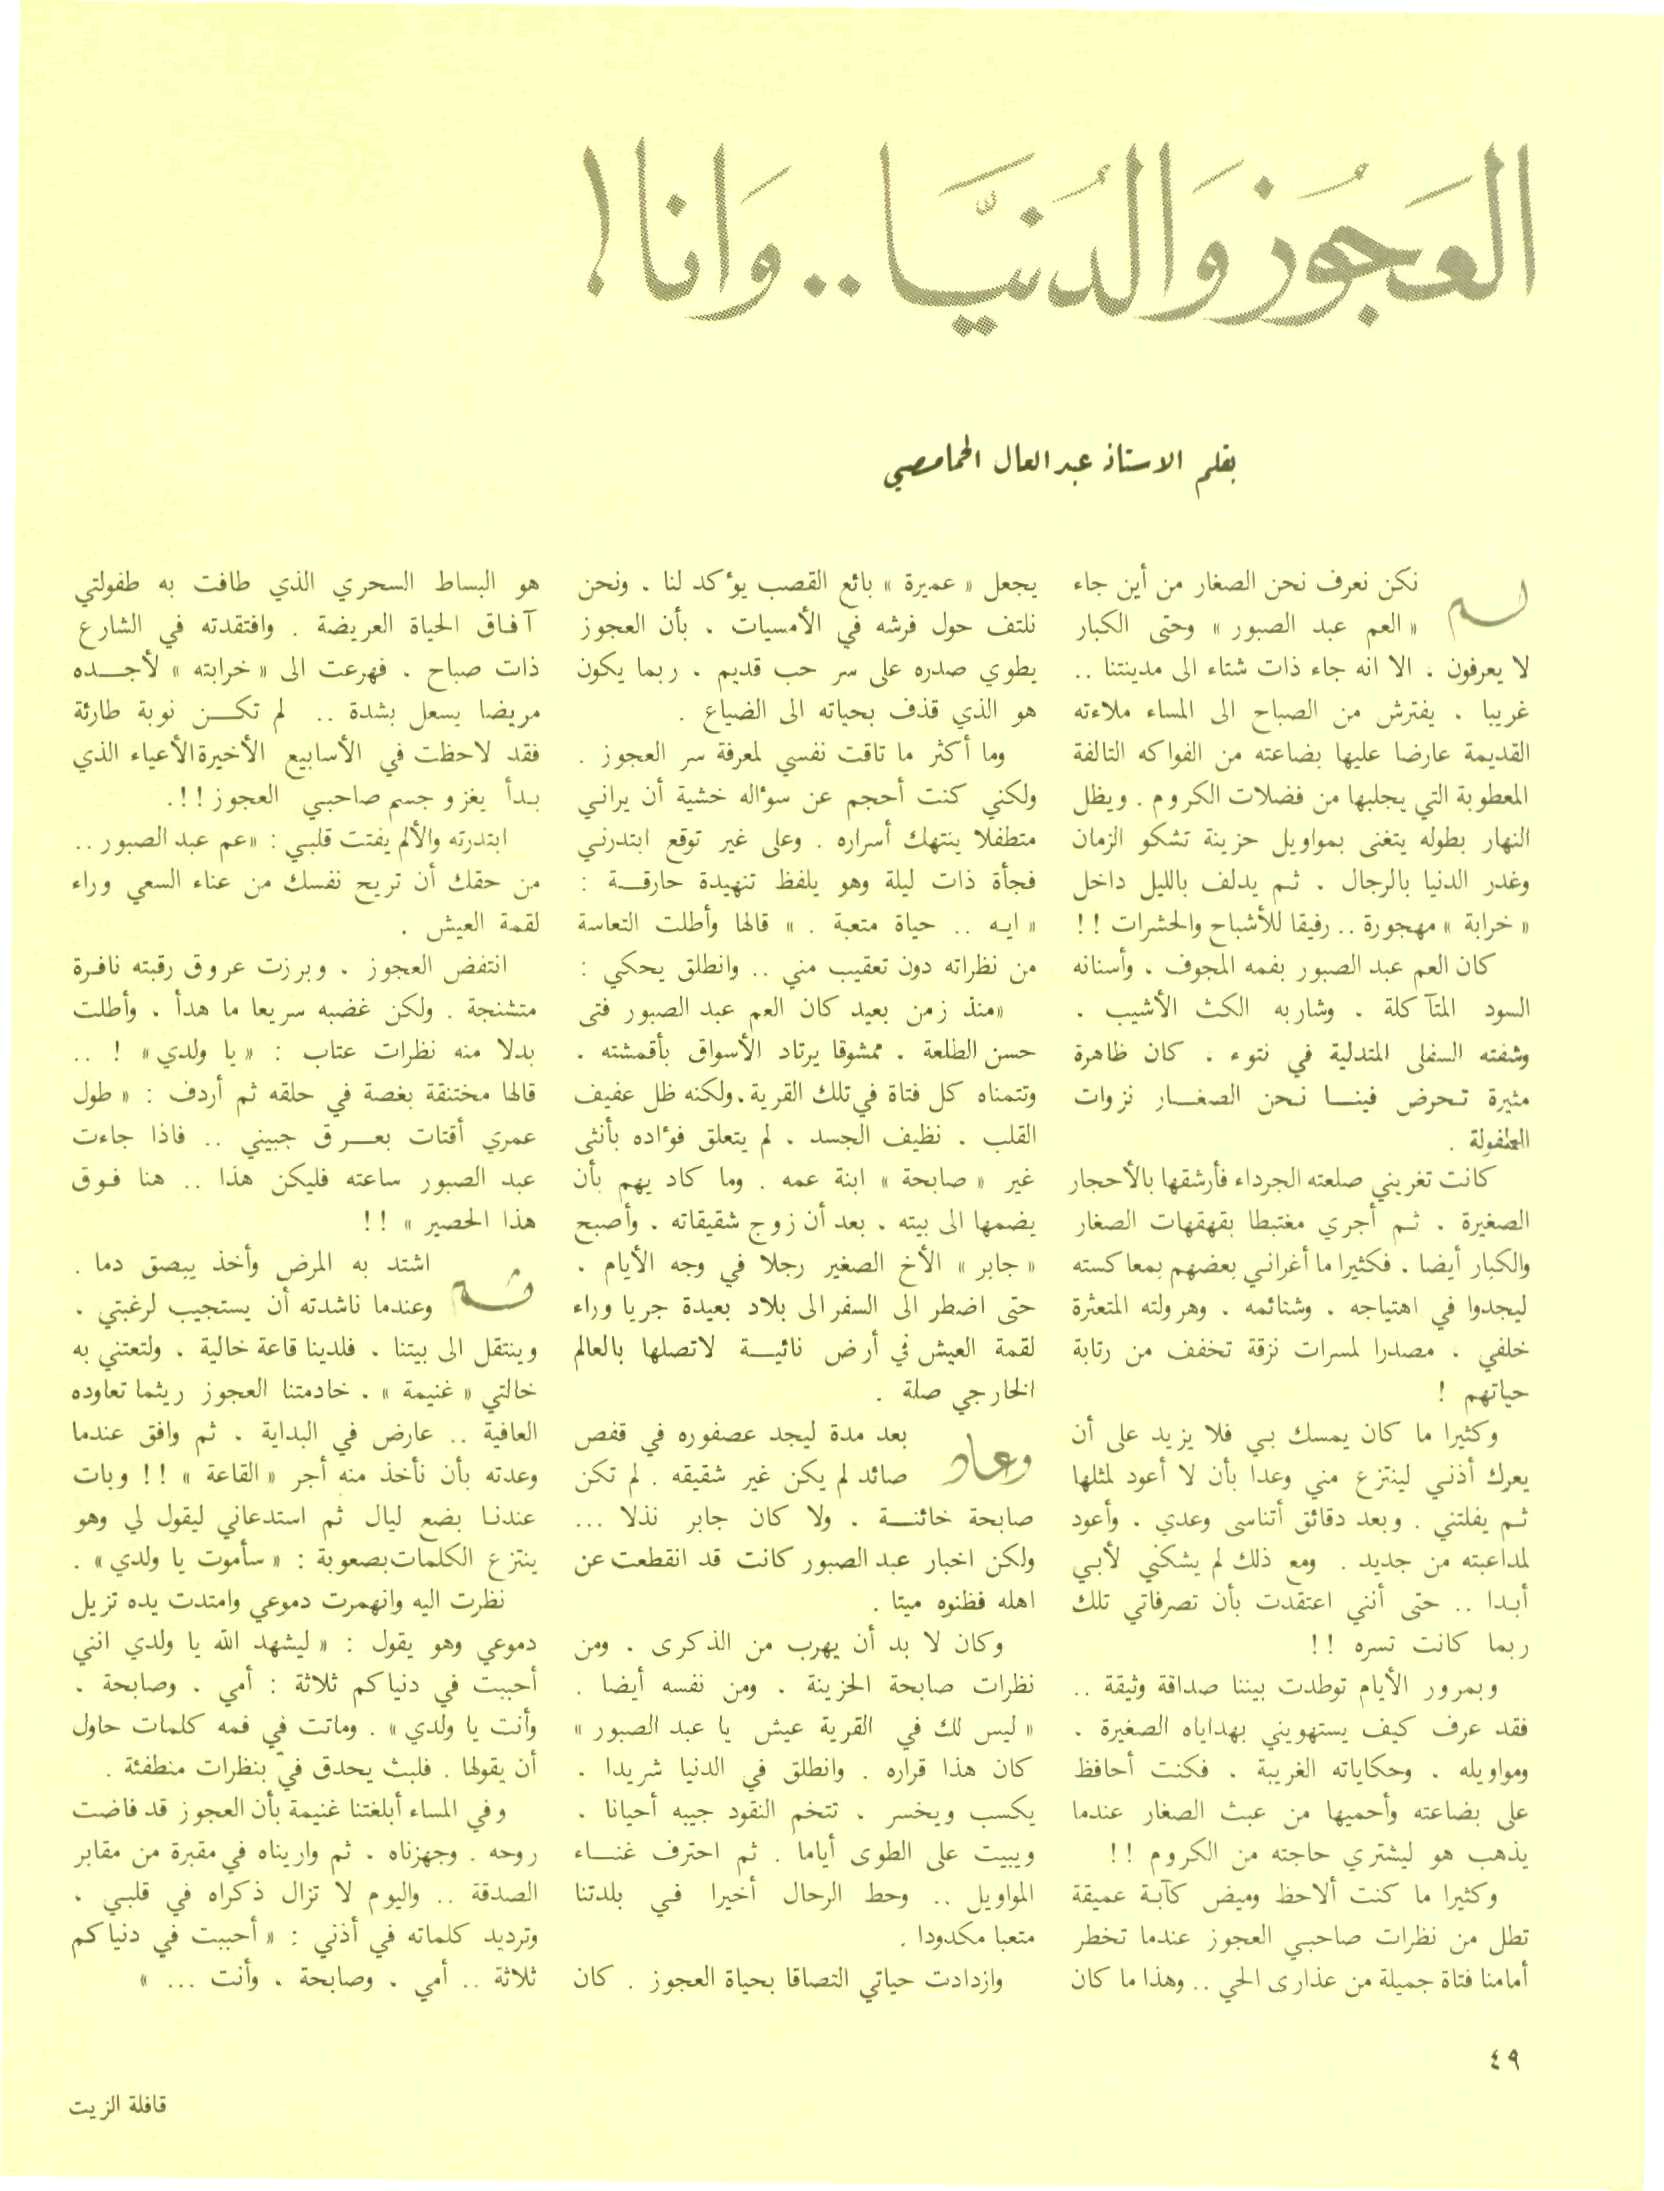 العَجُوز وَالدُنيَّا .. وَانا !
بقلم الاستاذ عبد العال الحمامصي
لم نكن نعرف نحن الصغار من أين جاء
« العم عبد الصبور » وحتى الكبار
لا يعرفون . الا انه جاء ذات شتاء الى مدينتنا ..
غريبا . يفترش من الصباح الى المساء ملاءته
القديمة عارضا عليها بضاعته من الفواكه التالفة
المعطوبة التي يجلبها من فضلات الكروم . ويظل
النهار بطوله يتغنى بمواويل حزينة تشكو الزمان
وغدر الدنيا بالرجال . ثم يدلف بالليل داخل
« خرابة » مهجورة .. رفيقا للأشباح والحشرات ! !
كان العم عبد الصبور بفمه المجوف . وأسنانه
السود المتآكلة . وشاربه الكث الأشيب .
وشفته السفلى المتدلية في نتوء . كان ظاهرة
مثيرة تحرض فينا نحن الصغار نزوات
الطفولة .
كانت تغريني صلعته الجرداء فأرشقها بالأحجار
الصغيرة . ثم أجري مغتبطا بقهقهات الصغار
والكبار أيضا . فكثيرا ما أغراني بعضهم بمعاكسته
ليجدوا في اهتياجه . وشتائمه . وهرولته المتعثرة
خلفي . مصدرا لمسرات نزقة تخفف من رتابة
حياتهم !
وكثيرا ما كان يمسك بي فلا يزيد على أن
يعرك أذني لينتزع مني وعدا بأن لا أعود لمثلها
ثم يفلتني . وبعد دقائق أتناسى وعدي . وأعود
لمداعبته من جديد . ومع ذلك لم يشكني لأبي
أبدا .. حتى أنني اعتقدت بأن تصرفاتي تلك
ربما كانت تسره ! !
وبمرور الأيام توطدت بيننا صداقة وثيقة ..
فقد عرف كيف يستهويني بهداياه الصغيرة .
ومواويله . وحكاياته الغريبة . فكنت أحافظ
على بضاعته وأحميها من عبث الصغار عندما
يذهب هو ليشتري حاجته من الكروم ! !
وكثيرا ما كنت ألاحظ وميض كآبة عميقة
تطل من نظرات صاحبي العجوز عندما تخطر
أمامنا فتاة جميلة من عذارى الحي .. وهذا ما كان
يجعل « عميرة » بائع القصب يؤكد لنا . ونحن
نلتف حول فرشه في الأمسيات . بأن العجوز
يطوي صدره على سر حب قديم . ربما يكون
هو الذي قذف بحياته الى الضياع .
وما أكثر ما تاقت نفسي لمعرفة سر العجوز .
ولكني كنت أحجم عن سؤاله خشية أن يراني
متطفلا ينتهك أسراره . وعلى غير توقع ابتدرني
فجأة ذات ليلة وهو يلفظ تنهيدة حارقة :
« ايه .. حياة متعبة . » قالها وأطلت التعاسة
من نظراته دون تعقيب مني .. وانطلق يحكي :
«منذ زمن بعيد كان العم عبد الصبور فتى
حسن الطلعة . ممشوقا يرتاد الأسواق بأقمشته .
وتتمناه كل فتاة في تلك القرية . ولكنه ظل عفيف
القلب . نظيف الجسد . لم يتعلق فؤاده بأنثى
غير « صابحة » ابنة عمه . وما كاد يهم بأن
يضمها الى بيته . بعد أن زوج شقيقاته . وأصبح
« جابر » الأخ الصغير رجلا في وجه الأيام .
حتى اضطر الى السفر الى بلاد بعيدة جريا وراء
لقمة العيش في أرض نائية لاتصلها بالعالم
الخارجي صلة .
وعاد بعد مدة ليجد عصفوره في قفص
صائد لم يكن غير شقيقه . لم تكن
صابحة خائنة . ولا كان جابر نذلا ...
ولكن اخبار عبد الصبور كانت قد انقطعت عن
اهله فظنوه ميتا .
وكان لا بد أن يهرب من الذكرى . ومن
نظرات صابحة الحزينة . ومن نفسه أيضا .
« ليس لك في القرية عيش يا عبد الصبور »
كان هذا قراره . وانطلق في الدنيا شريدا .
يكسب ويخسر . تتخم النقود جيبه أحيانا .
ويبيت على الطوى أياما . ثم احترف غناء
المواويل .. وحط الرحال أخيرا في بلدتنا
متعبا مكدودا .
وازدادت حياتي التصاقا بحياة العجوز . كان
هو البساط السحري الذي طافت به طفولتي
آفاق الحياة العريضة . وافتقدته في الشارع
ذات صباح . فهرعت الى « خرابته » لأجده
مريضا يسعل بشدة .. لم تكن نوبة طارئة
فقد لاحظت في الأسابيع الأخيرة الأعياء الذي
بدأ يغزو جسم صاحبي العجوز ! ! .
ابتدرته والألم يفتت قلبي : «عم عبد الصبور ..
من حقك أن تريح نفسك من عناء السعي وراء
لقمة العيش .
انتفض العجوز . وبرزت عروق رقبته نافرة
متشنجة . ولكن غضبه سريعا ما هدأ . وأطلت
بدلا منه نظرات عتاب : «يا ولدي» ! ..
قالها مختنقة بغصة في حلقه ثم أردف : « طول
عمري أقتات بعرق جبيني .. فاذا جاءت
عبد الصبور ساعته فليكن هذا .. هنا فوق
هذا الحصير » ! !
ثم اشتد به المرض وأخذ يبصق دما .
وعندما ناشدته أن يستجيب لرغبتي .
وينتقل الى بيتنا . فلدينا قاعة خالية . ولتعتني به
خالتي « غنيمة » . خادمتنا العجوز ريثما تعاوده
العافية .. عارض في البداية . ثم وافق عندما
وعدته بأن نأخذ منه أجر « القاعة » ! ! وبات
عندنا بضع ليال ثم استدعاني ليقول لي وهو
ينتزع الكلمات بصعوبة : «سأموت يا ولدي» .
نظرت اليه وانهمرت دموعي وامتدت يده تزيل
دموعي وهو يقول : « ليشهد الله يا ولدي انني
أحببت في دنياكم ثلاثة : أمي . وصابحة .
وأنت يا ولدي» . وماتت في فمه كلمات حاول
أن يقولها . فلبث يحدق فيّ بنظرات منطفئة .
وفي المساء أبلغتنا غنيمة بأن العجوز قد فاضت
روحه . وجهزناه . ثم واريناه في مقبرة من مقابر
الصدقة .. واليوم لا تزال ذكراه في قلبي .
وترديد كلماته في أذني : « أحببت في دنياكم
ثلاثة .. أمي . وصابحة . وأنت ... »
٤٩
قافلة الزيت